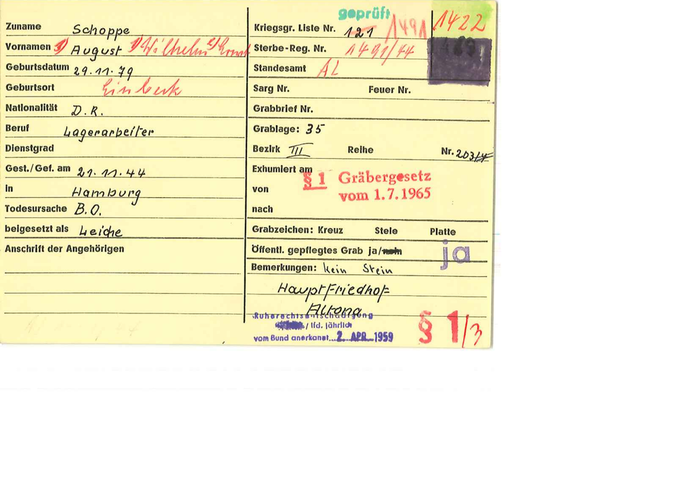 geprüft
Zuname Schoppe
Vornamen 1) August 2) Wilhelm 3) Ernst
Geburtsdatum 29.11.79
Geburtsort Einbeck
Nationalität D.R.
Beruf Lagerarbeiter
Dienstgrad
Gest./Gef. am 21.11.44
in Hamburg
Todesursache B.O.
beigesetzt als Leiche
Anschrift der Angehörigen
Kriegsgr. Liste Nr. 121 1491 1422
Sterbe-Reg. Nr. 1491/44
Standesamt AL
Sarg Nr. Feuer Nr.
Grabbrief Nr.
Grablage: 35
Bezirk III Reihe Nr.
Exhumiert am
§ 1 Gräbergesetz
von vom 1.7.1965
nach
Grabzeichen: Kreuz Stele Platte
Öffentl. gepflegtes Grab ja/nein ja
Bemerkungen: kein Stein
Hauptfriedhof
Altona
Ruherechtsentschädigung
/ lfd. jährlich
vom Bund anerkannt 2. APR. 1959
§ 1/3